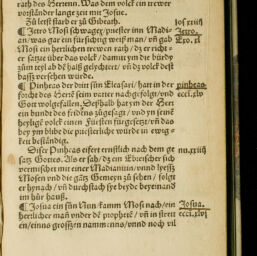 rath des Herren. Was dem volck ein trewer
vorständer lange zeit mit Josue.
Zů letst starb er zů Gibeath. Jos xxiiij
¶ Jetro Mosi schwager/ priester inn Madi- Jetro.
an/ was gar ein fürsichtig weiß man/ vñ gab Exo. xl
Mosi ein herrlichen trewen rath/ dz er rich-
ter satzte über das volck/ damit ym die bürdy
zům teyl ab dē halß gelychtert/ vñ dz volck dest
baß versehen würde.
¶ Pinehas der dritt sün Eleasari/ hatt in der pinehas.
forcht des Herrē seim vatter nachgefolgt/ vnd eccl.xlv
Gott wolgefallen. Deßhalb hat ym der Herr
ein bundt des fridens zůgesagt/ vnd yn seinē
heyligē volck einen Fürsten fürgesetzt/ vñ das
bey ym blibe die priesterliche würde in ewig-
keit bestendig.
Diser Pinehas eifert ernstlich nach dem ge nu.xxiiij
satz Gottes. Als er sah/ dz ein Ebreischer sich
vermischet mit einer Madianitin/ vnnd lyesß
Mosen vnd die gātz Gemeyn zů sehen/ folgt
er hynach/ vñ durchstach sye beyde beyeinand
im hůr hauß.
¶ Josua ein sün Nun kamm Mosi nach/ ein Josua.
herrlicher mañ vnder dē prophetē/ vñ in streit eccl.xlvj
en/ einns grosszen nammens/ vnnd noch vil